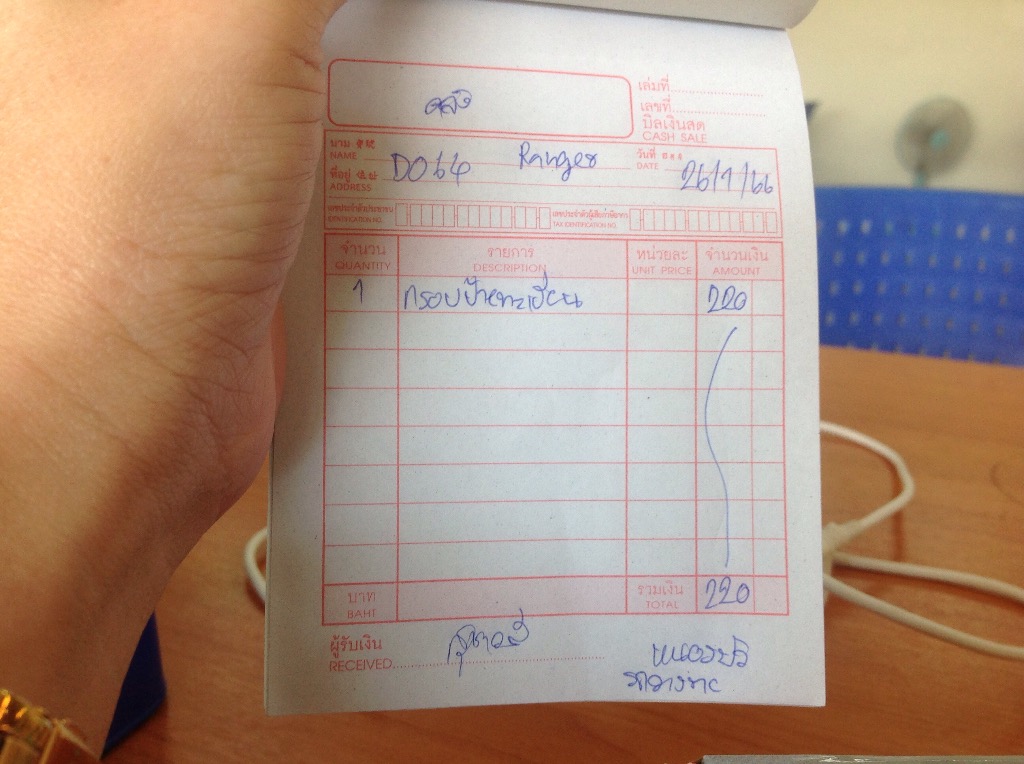 เล่มที่
เลขที่
บิลเงินสด
CASH SALE
นาม 寶號
NAME
Ranger
วันที่ 日期
DATE
26/1/66
ที่อยู่ 住址
ADDRESS
DO64
เลขประจำตัวประชาชน
IDENTIFICATION NO.
เลขประจำตัวผู้เสียภาษีอากร
TAX IDENTIFICATION NO.
จำนวน รายการ หน่วยละ จำนวนเงิน
QUANTITY DESCRIPTION UNIT PRICE AMOUNT
1 กรอบป้ายทะเบียน 220
บาท รวมเงิน 220
BAHT TOTAL
ผู้รับเงิน
RECEIVED